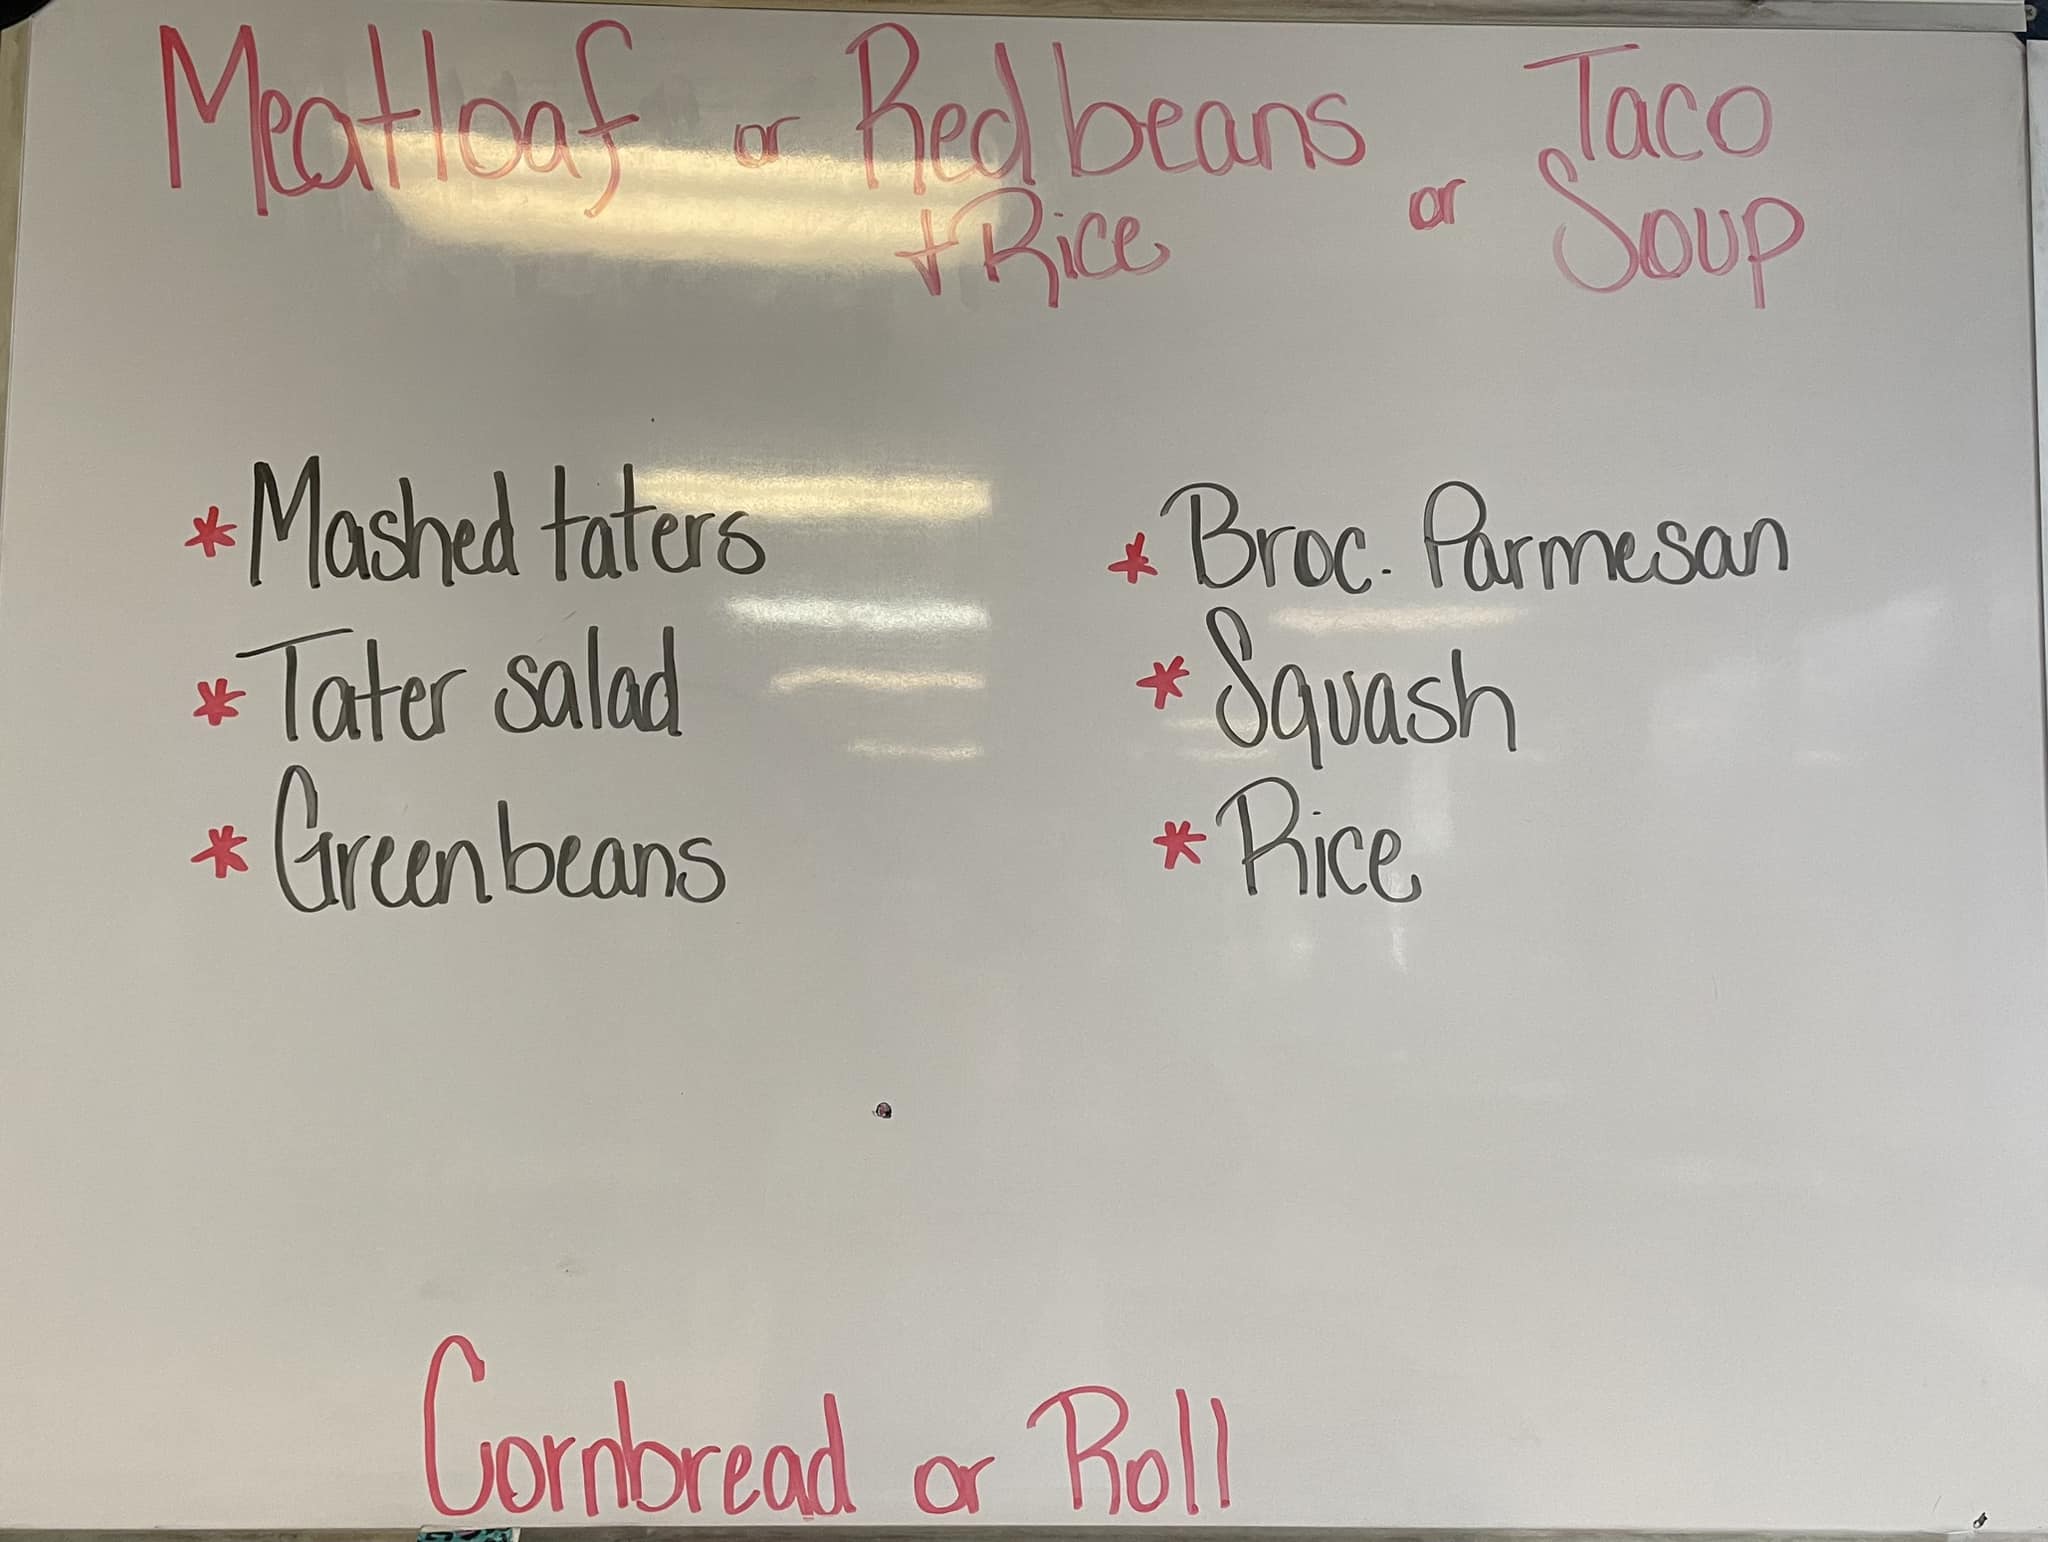 Meatloaf or Red beans or Taco
+ Rice Soup
* Mashed taters
* Tater salad
* Green beans
* Broc. Parmesan
* Squash
* Rice
Cornbread or Roll